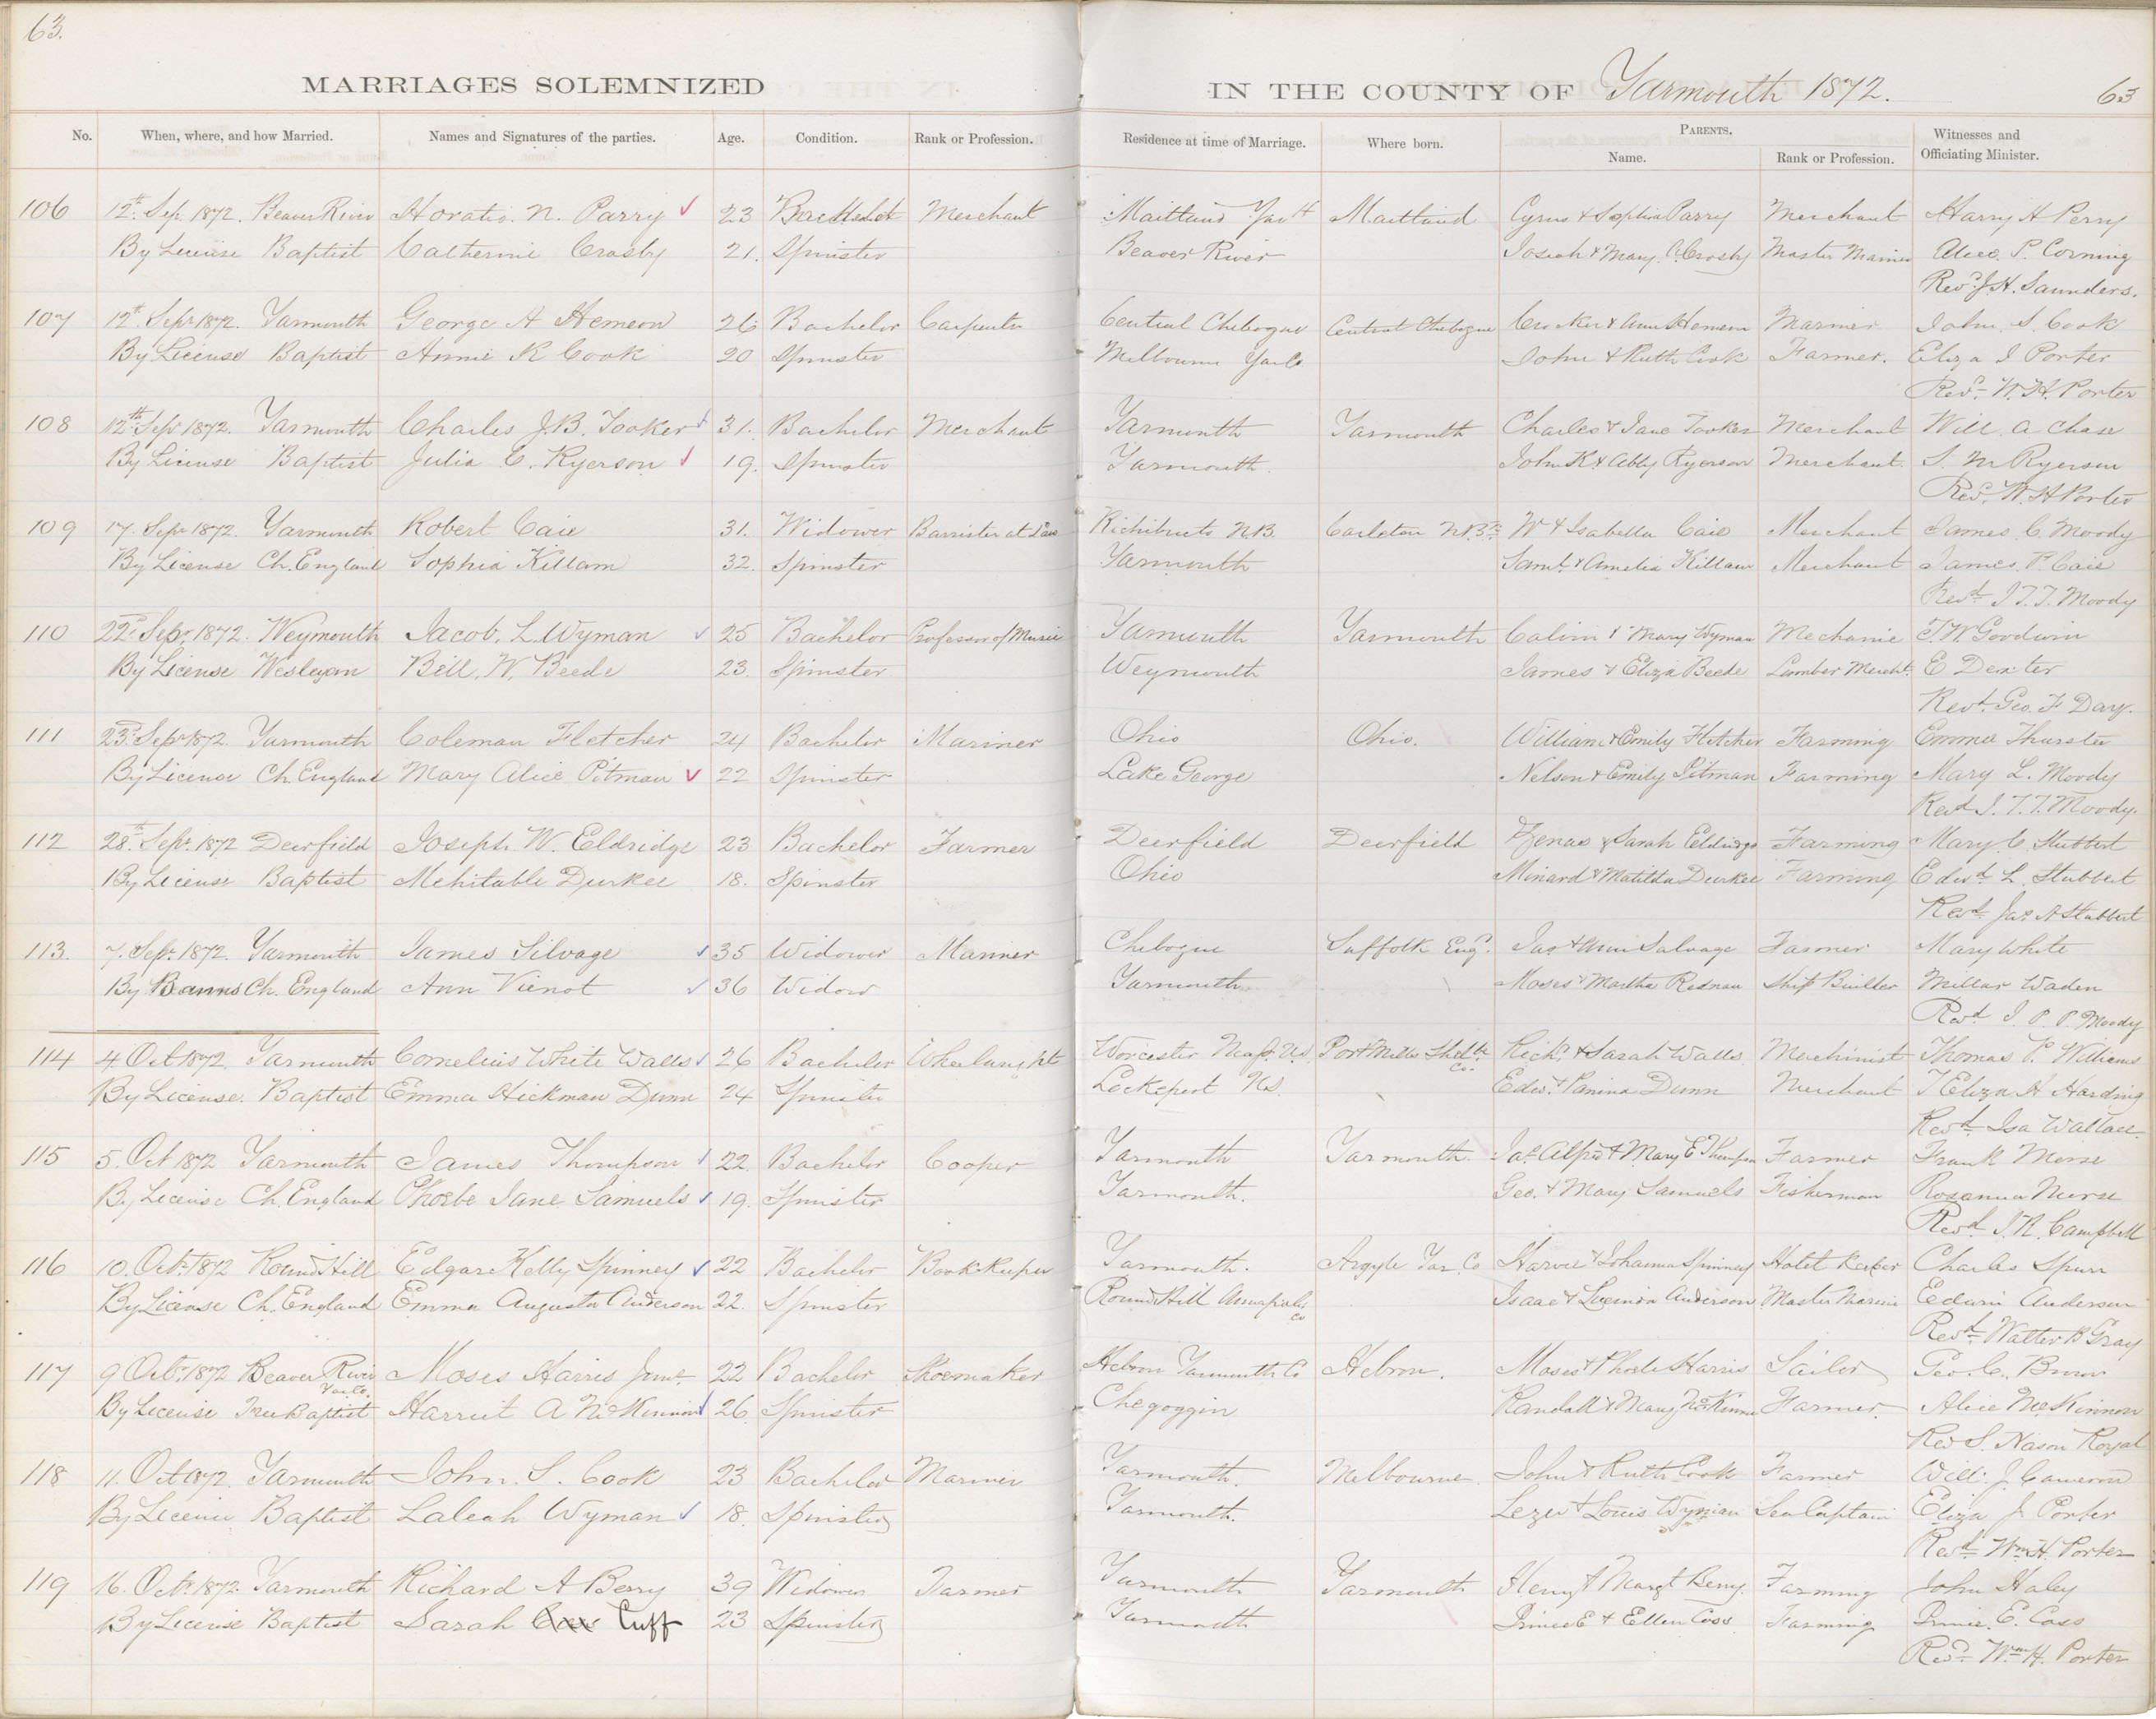 63.
MARRIAGES SOLEMNIZED
IN THE COUNTY OF Yarmouth 1872. 63
No. When, where, and how Married. Names and Signatures of the parties. Age. Condition. Rank or Profession. Residence at time of Marriage. Where born. PARENTS. Name. Rank or Profession. Witnesses and Officiating Minister.
106 12th Sep. 1872. Beaver River Horatio. N. Parry 23 Merchant Maitland Maitland Cyrus & Sophia Parry Merchant Harry A Perry
By License Baptist Catherine Crosby 21. Spinster Beaver River Josiah & Mary. Crosby Master Alice. P. Corning
Revd. J. H. Saunders.
107 12th Sept 1872. Yarmouth George A Hemeon 26 Bachelor Carpenter Central Chebogue Central Chebogue & Ann Hemeon Mariner John. S. Cook
By License Baptist Annie R Cook 20 Spinster Melbourne Yar Co. John & Ruth Cook Farmer. Eliza J Porter
Revd. W. H. Porter
108 12th Sept 1872. Yarmouth Charles J. B. Tooker 31. Bachelor Merchant Yarmouth Yarmouth Charles & Jane Tooker Merchant Will. A Chase
By License Baptist Julia C. Ryerson 19. Spinster Yarmouth. John K. & Abby Ryerson Merchant. S. M Ryerson
Revd. W. H Porter
109 17. Sepr 1872. Yarmouth Robert Caie 31. Widower Barrister at Law Richibucto N.B. Carleton N.B. W & Isabella Caie Merchant James. C. Moody
By License Ch. England Sophia Killam 32. Spinster Yarmouth Saml. & Amelia Killam Merchant James. P. Caie
Revd J. T. T. Moody
110 22d Sepr. 1872. Weymouth Jacob. L. Wyman 25 Bachelor Professor of Music Yarmouth Yarmouth Calvin & Mary Wyman Mechanic T. W. Goodwin
By License Wesleyan Bill. W. Beede 23. Spinster Weymouth James & Eliza Beede Lumber Mercht. E Dexter
Revd. Geo. F Day.
111 23d Sepr 1872. Yarmouth Coleman Fletcher 24 Bachelor Mariner Ohio Ohio. William & Emily Fletcher Farming Emma
By License Ch. England Mary Alice Pitman 22 Spinster Lake George Nelson & Emily Pitman Farming Mary L. Moody
Revd J. T. T. Moody.
112 28th Sept. 1872 Deerfield Joseph. W. Eldridge 23 Bachelor Farmer Deerfield Deerfield Zenas & Sarah Eldridge Farming Mary. C. Stubbert
By License Baptist Mehitable Durkee 18. Spinster Ohio Minard & Matilda Durkee Farming Edwd L. Stubbert
Revd Jas A Stubbert
113. 7. Sepr. 1872. Yarmouth James Silvage 35 Widower Mariner Chebogue Suffolk Eng. Jas & Ann Salvage Farmer Mary White
By Banns Ch. England Ann Vienot 36 Widow Yarmouth Moses & Martha Redman Ship Builder Millar Waden
Revd J. P. P. Moody
114 4. Oct 1872. Yarmouth Cornelius White Walls 26 Bachelor Worcester Mass. U.S. Port Mills Shelbe Co. Richd. & Sarah Walls Merchinist Thomas P. Williams
By License. Baptist Emma Hickman Dunn 24 Spinster Lockeport NS Edwd. & Dunn Merchant T Eliza A Harding
Revd Isa Wallace.
115 5. Oct 1872 Yarmouth James Thompson 22. Bachelor Cooper Yarmouth Yarmouth. Jas Alfrd & Mary E Thompson Farmer Frank
By License Ch. England Phoebe Jane Samuels 19. Spinster Yarmouth. Geo. & Mary Samuels Fisherman Rosanna
Revd J. R. Campbell
116 10. Octr. 1872 Round Hill Edgar Kelly Spinney 22 Bachelor Book Keeper Yarmouth. Argyle Yar. Co Harvie & Johanna Spinney Hotel Keeper Charles Spurr
By License Ch. England Emma Augusta Anderson 22. Spinster Round Hill Annapolis Co Isaac & Lucinda Anderson Master Edwin Anderson
Revd Walter B Gray
117 9 Octr. 1872 Beaver River Yar. Co. Moses Harris Junr. 22 Bachelor Shoemaker Hebron Yarmouth Co Hebron. Moses & Phoebe Harris Sailor Geo. C. Brown
By License Free Baptist Harriet A McKinnon 26. Spinster Chegoggin Randall & Mary McKinnon Farmer. Alice McKinnon
Rev S. Nason Royal
118 11. Oct 1872. Yarmouth John. S. Cook 23 Bachelor Mariner Yarmouth. Melbourne John & Ruth Cook Farmer Will: J. Cameron
By License Baptist Laleah Wyman 18. Spinster Yarmouth. & Louis Wyman Sea Captain Eliza J Porter
Revd. Wm H. Porter
119 16. Octr. 1872. Yarmouth Richard A Berry 39 Widower Farmer Yarmouth Yarmouth Henry & Margt Berry. Farming John Haley
By License Baptist Sarah Cuff 23 Spinster Yarmouth Prince E & Ellen Coss Farming Prince. E. Coss
Revd. Wm H. Porter